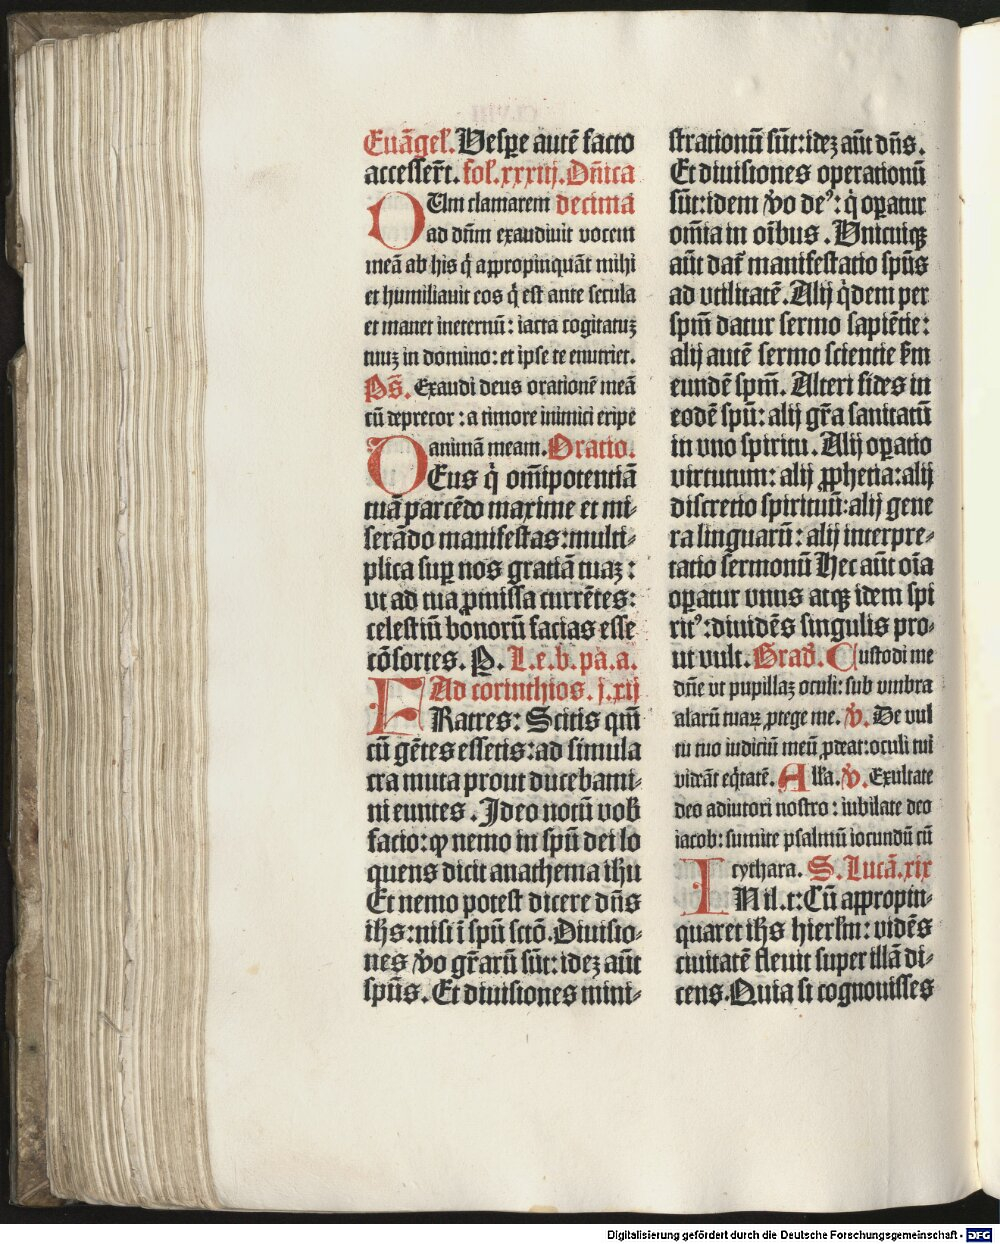 Euãgel᷒. Vespe autẽ facto
accesser̃t. fol᷒. xxxiij. Dñica
CUm clamarem decima
ad dñm exaudiuit vocem
meã ab his q̇ appropinquãt mihi
et humiliauit eos q̇ est ante secula
et manet ineternũ: iacta cogitatuꝫ
tuuꝫ in domino: et ipse te enutriet.
Ps̃. Exaudi deus orationẽ meã
cũ deprecor: a timore inimici eripe
animã meam. Oratio.
DEus q̇ om̃ipotentiã
tuã parcẽdo maxime et mi-
serãdo manifestas: multi-
plica suꝑ nos gratiã tuaꝫ:
vt ad tua ꝓmissa currẽtes:
celestiũ bonorũ facias esse
cõsortes. P. L. e. b. pa. a.
Ad corinthios. j. xij
FRatres: Scitis qm̃
cũ gẽtes essetis: ad simula
cra muta prout ducebami-
ni euntes. Ideo notũ vob᷒
facio: ꝙ nemo in spũ dei lo
quens dicit anathema ihũ
Et nemo potest dicere dñs
ihs: nisi ĩ spũ sctõ. Diuisio-
nes v̊o gr̃arũ sũt: ideꝫ aũt
spũs. Et diuisiones mini-
strationũ sũt: ideꝫ aũt dñs.
Et diuisiones operationũ
sũt: idem v̊o deꝰ: q̇ oꝑatur
om̃ia in oĩbus. Vnicuiqꝫ
aũt dat᷒ manifestatio spũs
ad vtilitatẽ. Alij q̇dem per
spm̃ datur sermo sapiẽtie:
alij autẽ sermo scientie s̃m
eundẽ spm̃. Alteri fides in
eodẽ spũ: alij gr̃a sanitatũ
in vno spiritu. Alij oꝑatio
virtutum: alij ꝓphetia: alij
discretio spirituũ: alij gene
ra linguarũ: alij interpre-
tatio sermonũ Hec aũt oĩa
oꝑatur vnus atqꝫ idem spi
ritꝰ: diuidẽs singulis pro-
ut vult. Grad᷒. Custodi me
dñe vt pupillaꝫ oculi: sub vmbra
alarũ tuaꝝ ꝓtege me. V̊. De vul
tu tuo iudiciũ meũ ꝓdeat: oculi tui
videãt eq̇tatẽ. All᷒a. V̊. Exultate
deo adiutori nostro: iubilate deo
iacob: sumite psalmũ iocundũ cũ
cythara. S. Lucã. xix
INil. t: Cũ appropin-
quaret ihs hierl᷒m: vidẽs
ciuitatẽ fleuit super illã di-
cens. Quia si cognouisses
Digitalisierung gefördert durch die Deutsche Forschungsgemeinschaft - DFG